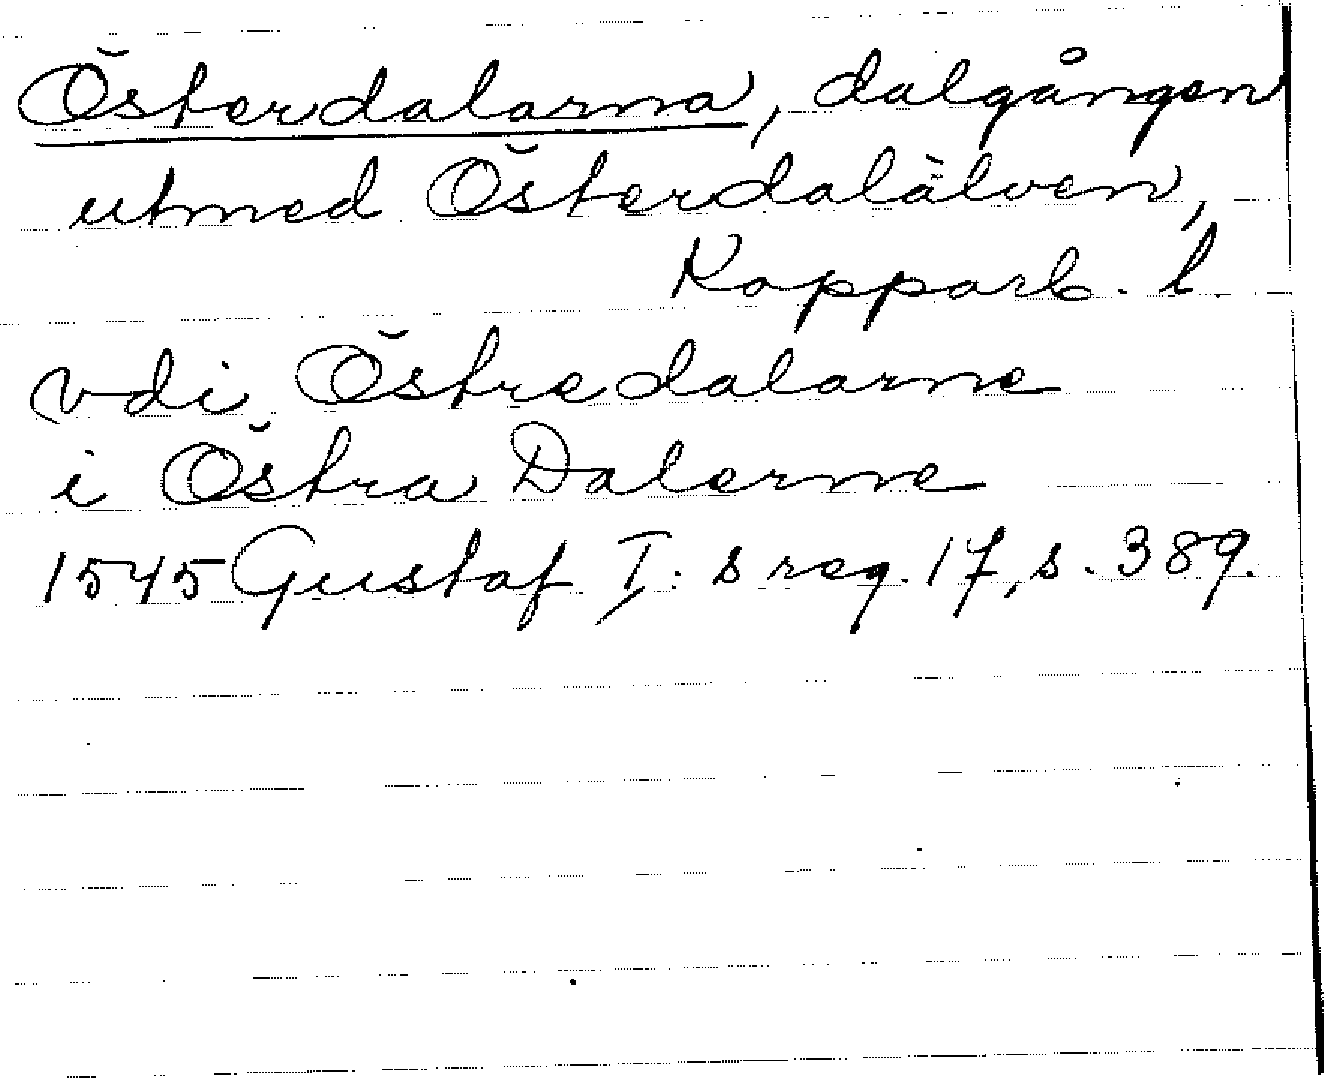 Österdalarna, dalgången
utmed Österdalälven,
Kopparb. l.
vdi Östredalarne
i Östra Dalerne
1545 Gustaf I:s reg. 17, s. 389.